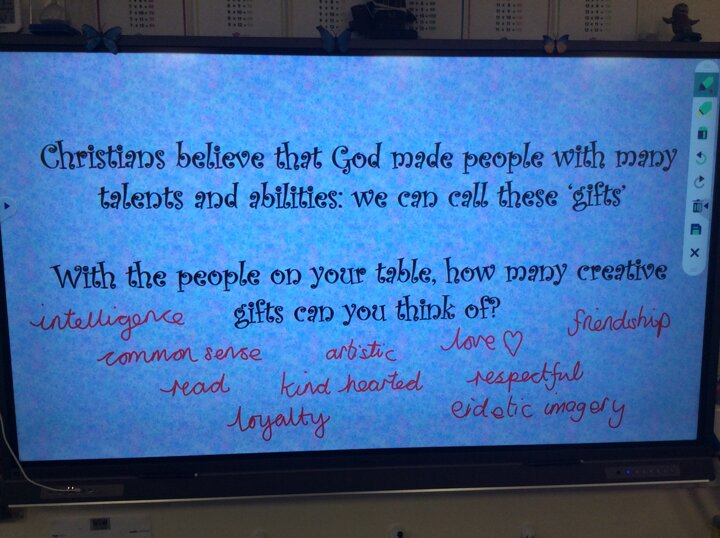 Christians believe that God made people with many
talents and abilities: we can call these 'gifts'
With the people on your table, how many creative
gifts can you think of?
intelligence
friendship
common sense
artistic
love ♡
read
kind hearted
respectful
loyalty
eidetic imagery